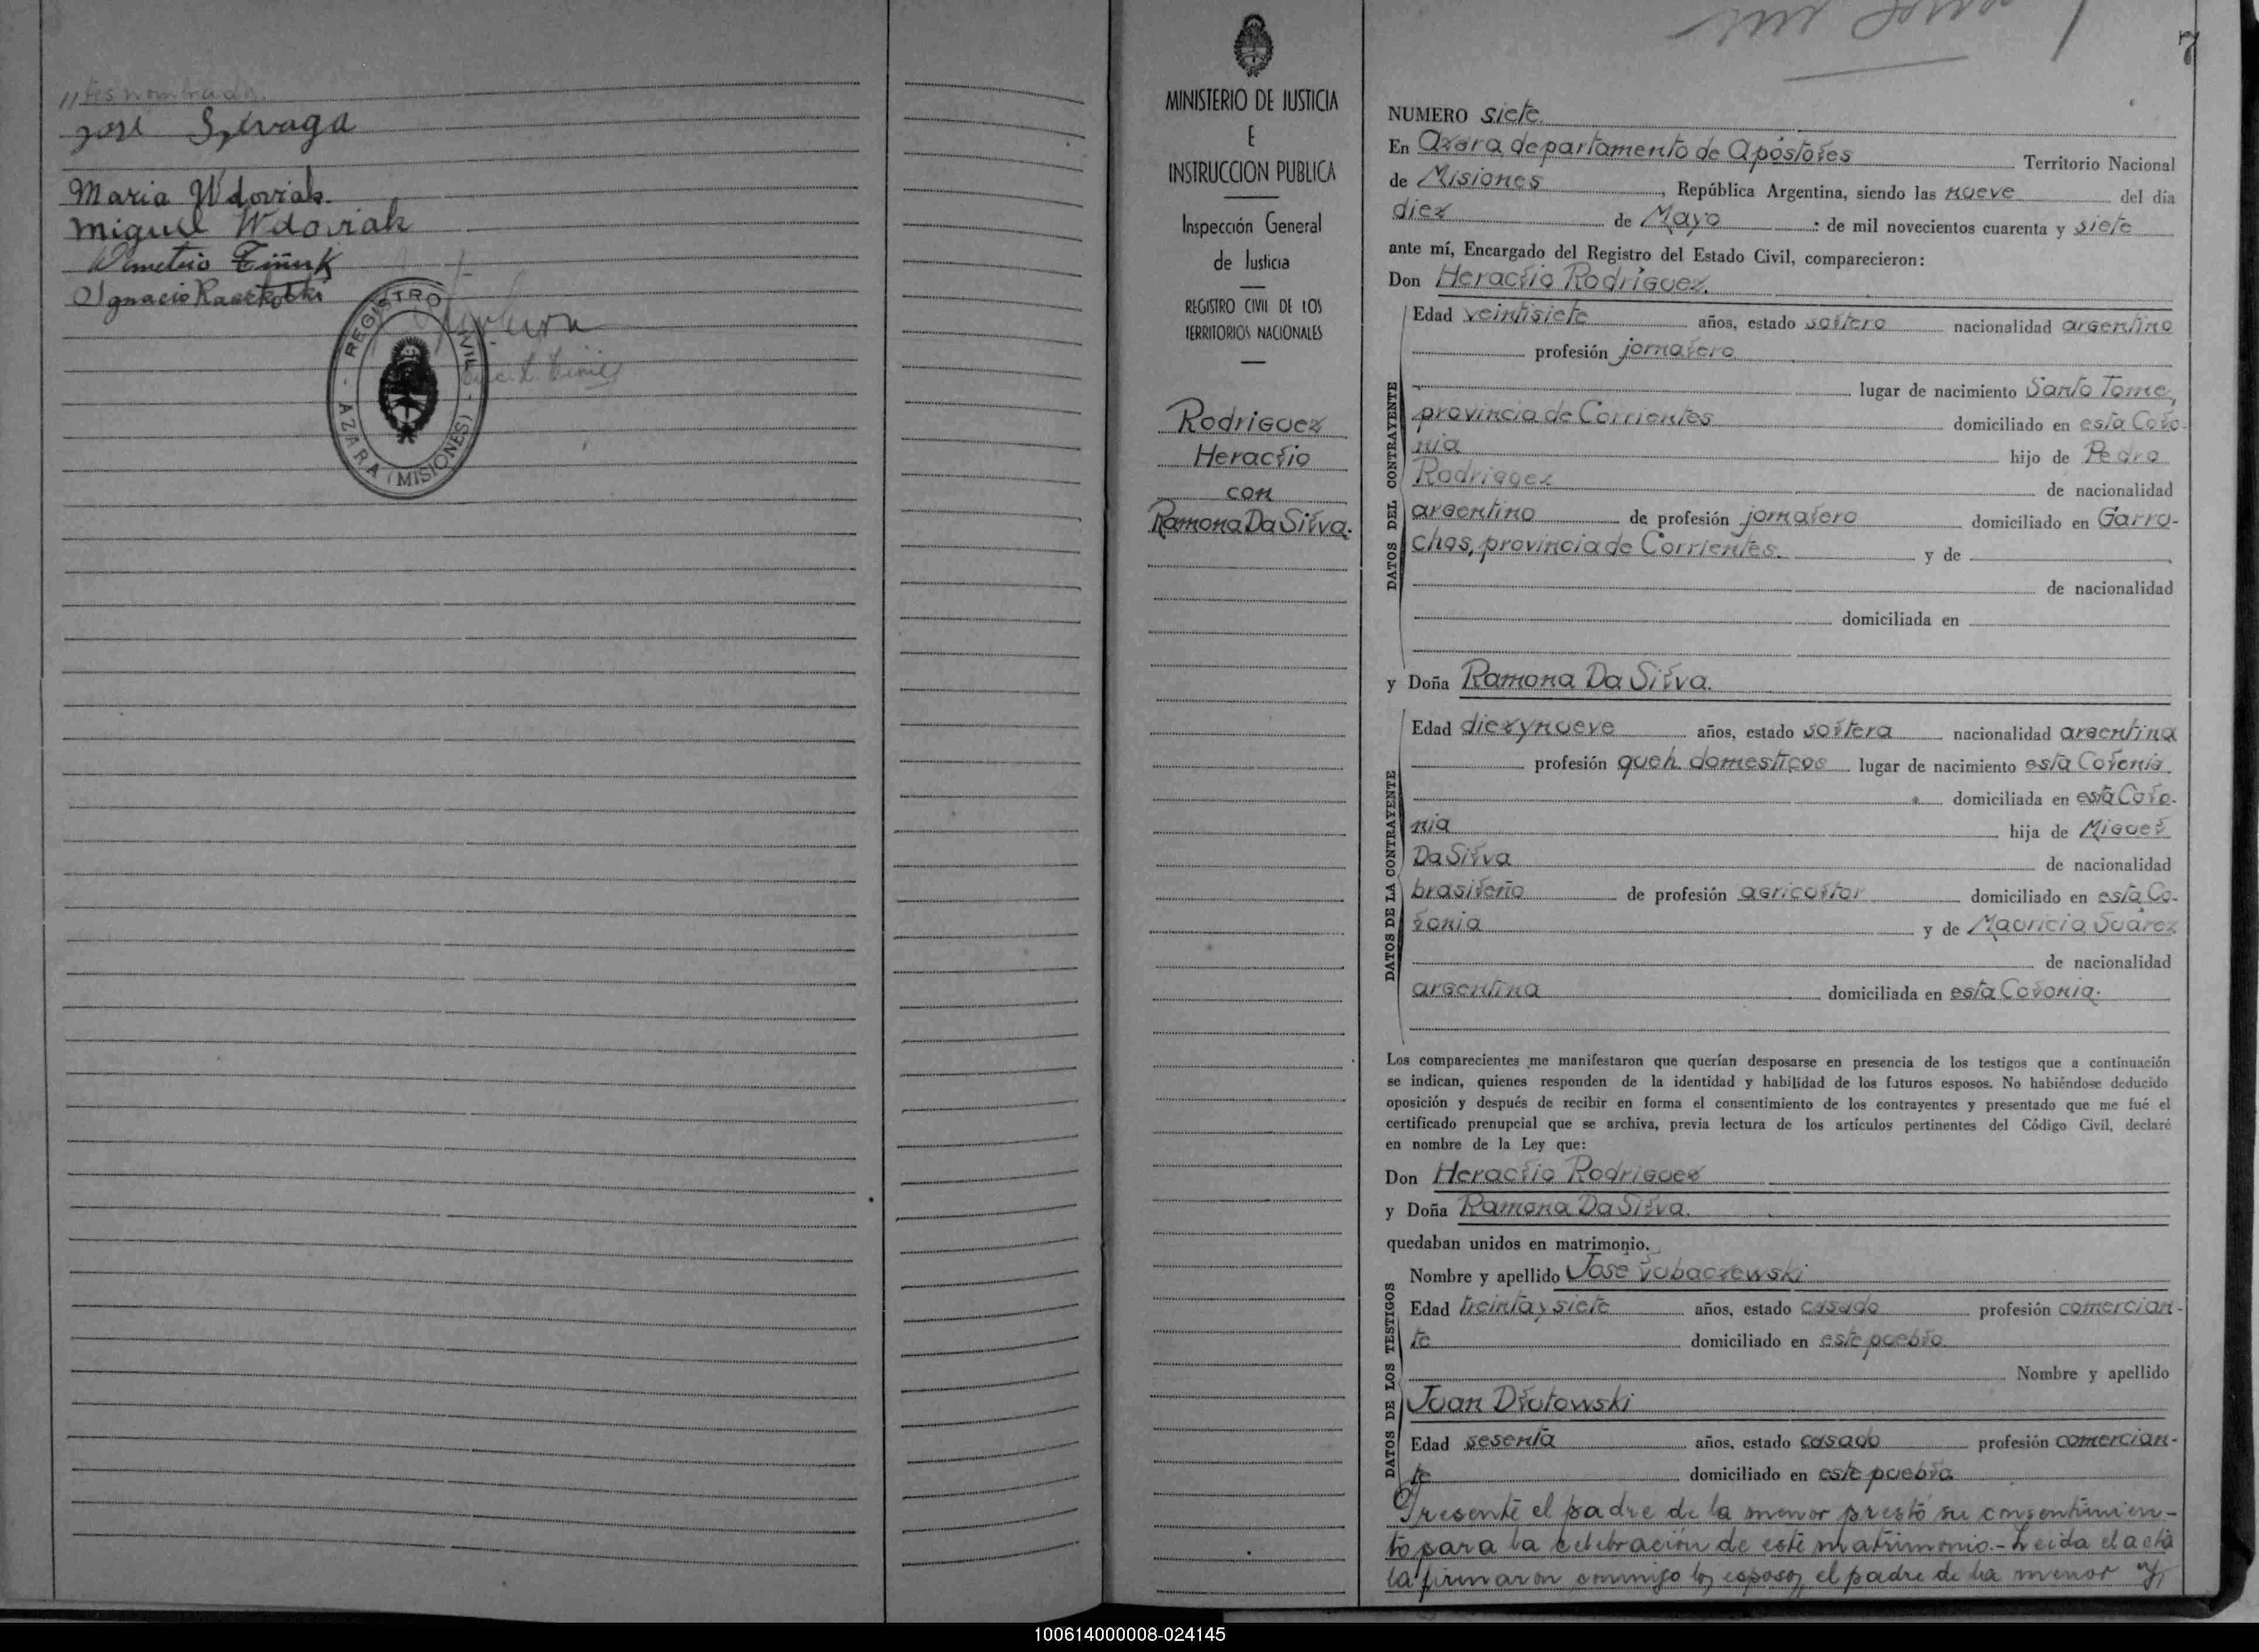 "tes nombrados.
José Szewaga
Maria Wdoviak.
Miguel Wdoviak
Demetrio
Ignacio
REGISTRO CIVIL
AZARA (MISIONES)
MINISTERIO DE JUSTICIA
E
INSTRUCCION PUBLICA
Inspección General
de Justicia
REGISTRO CIVIL DE LOS
TERRITORIOS NACIONALES
Rodriguez
Heraclio
con
Ramona Da Silva.
7
NUMERO siete.
En Azara, departamento de Apóstoles Territorio Nacional
de Misiones, República Argentina, siendo las nueve del día
diez de Mayo de mil novecientos cuarenta y siete
ante mí, Encargado del Registro del Estado Civil, comparecieron:
Don Heraclio Rodriguez.
DATOS DEL CONTRAYENTE
Edad veintisiete años, estado soltero nacionalidad argentino
profesión jornalero
lugar de nacimiento Santo Tome,
provincia de Corrientes domiciliado en esta Colo-
nia hijo de Pedro
Rodriguez de nacionalidad
argentino de profesión jornalero domiciliado en Garru-
chos, provincia de Corrientes. y de
de nacionalidad
domiciliada en
y Doña Ramona Da Silva.
DATOS DE LA CONTRAYENTE
Edad diezynueve años, estado soltera nacionalidad argentina
profesión queh. domesticos lugar de nacimiento esta Colonia.
domiciliada en esta Colo-
nia hija de Miguel
Da Silva de nacionalidad
brasileño de profesión agricultor domiciliado en esta Co-
lonia y de Mauricia Suárez
de nacionalidad
argentina domiciliada en esta Colonia.
Los comparecientes me manifestaron que querían desposarse en presencia de los testigos que a continuación
se indican, quienes responden de la identidad y habilidad de los futuros esposos. No habiéndose deducido
oposición y después de recibir en forma el consentimiento de los contrayentes y presentado que me fué el
certificado prenupcial que se archiva, previa lectura de los artículos pertinentes del Código Civil, declaré
en nombre de la Ley que:
Don Heraclio Rodriguez
y Doña Ramona Da Silva.
quedaban unidos en matrimonio.
DATOS DE LOS TESTIGOS
Nombre y apellido José Lubaczewski
Edad treinta y siete años, estado casado profesión comercian-
te domiciliado en este pueblo.
Nombre y apellido
Juan Dlutowski
Edad sesenta años, estado casado profesión comercian-
te domiciliado en este pueblo
Presente el padre de la menor prestó su consentimien-
to para la celebración de este matrimonio.- Leida el acta
la firmaron conmigo los esposos, el padre de la menor y,
100614000008-024145